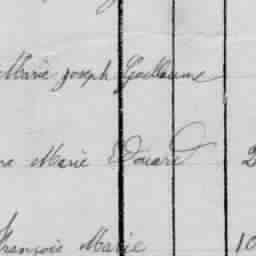 Marie Joseph Guillaume
ne Marie Douaré 2
François Marie 10